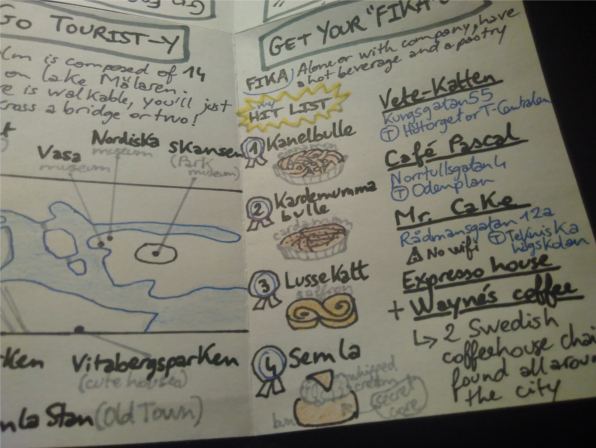 GO TOURIST-Y
lm is composed of 14
on lake Mälaren.
re is walkable, you'll just
cross a bridge or two!
Nordiska
museum
Skansen
(Park
museum)
Vasa
museum
rken
Vitabergsparken
(cute houses)
mla Stan (Old Town)
GET YOUR "FIKA"
FIKA: Alone or with company, have
a hot beverage and a pastry
my
HIT LIST
1 Kanelbulle
2 Kardemumma
bulle
cardamom
3 Lussekatt
saffron
4 Semla
whipped
cream
bun
secret
core
Vete-Katten
Kungsgatan 55
T Hötorget or T-Centralen
Café Pascal
Norrtullsgatan 4
T Odenplan
Mr. Cake
Rådmansgatan 12a
No wifi
T Tekniska
högskolan
Expresso house
+ Wayne's coffee
↳ 2 Swedish
coffeehouse chai
found all arou
the city